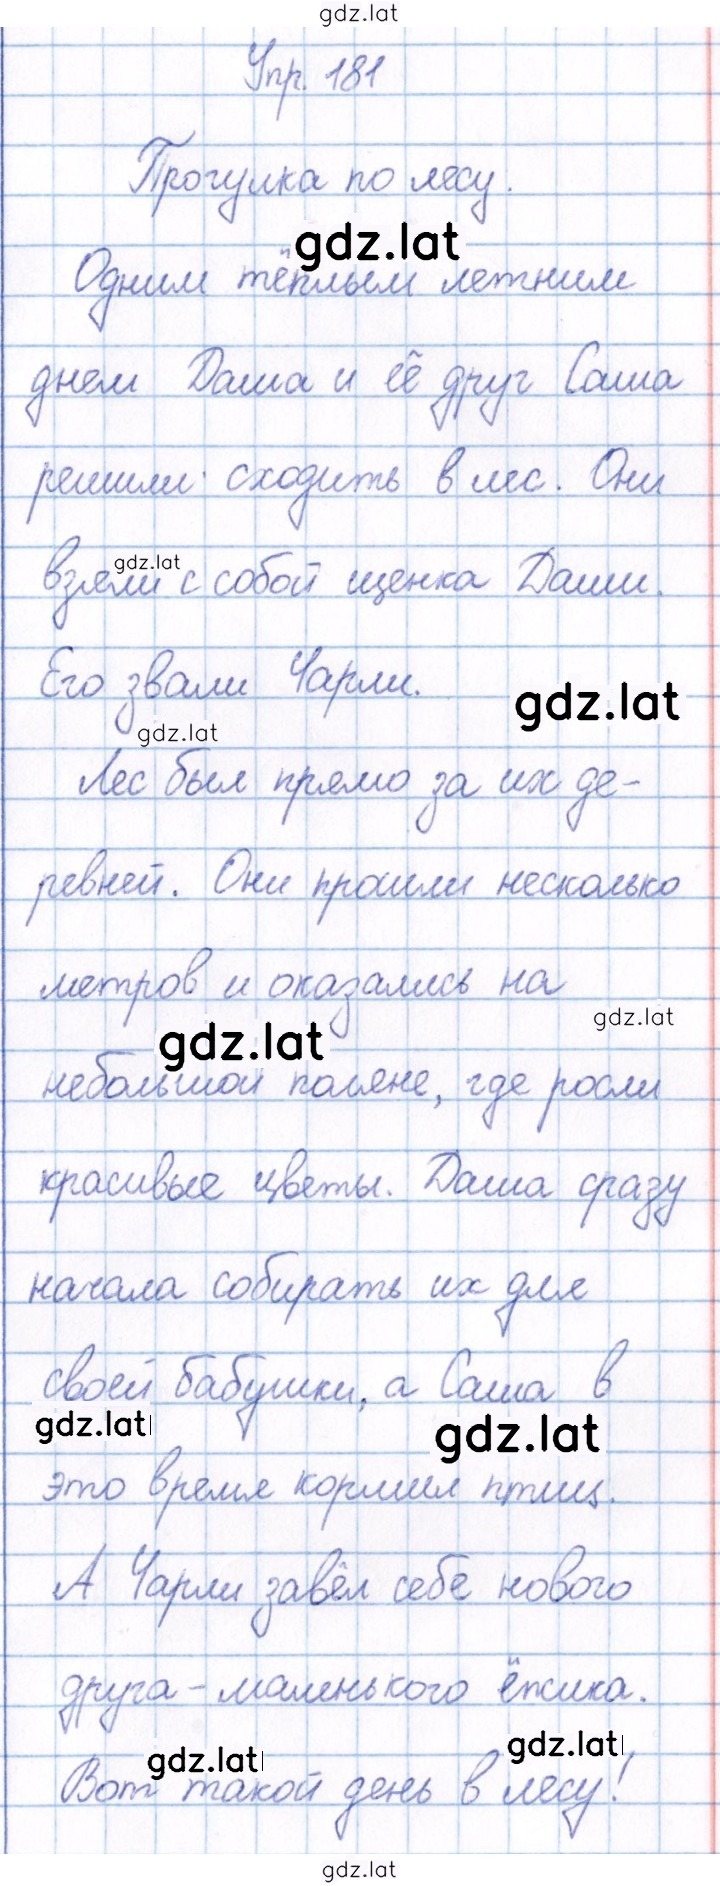 gdz.lat
Упр. 181
Прогулка по лесу.
gdz.lat
Одним тёплым летним
днем Даша и её друг Саша
решили сходить в лес. Они
gdz.lat
взяли с собой щенка Даши.
Его звали Чарли.
gdz.lat
gdz.lat
Лес был прямо за их де-
ревней. Они прошли несколько
метров и оказались на
gdz.lat
gdz.lat
небольшой поляне, где росли
красивые цветы. Даша сразу
начала собирать их для
своей бабушки, а Саша в
gdz.lat
gdz.lat
это время кормил птиц.
А Чарли завёл себе нового
друга - маленького ёжика.
gdz.lat
gdz.lat
Вот такой день в лесу!
gdz.lat